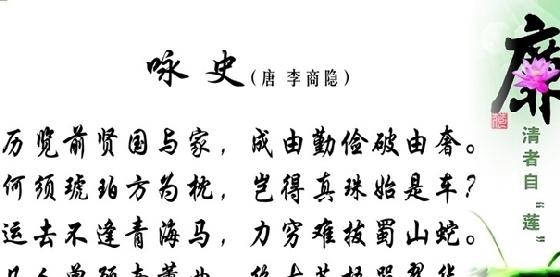 咏史(唐 李商隐)
历览前贤国与家，成由勤俭破由奢。
何须琥珀方为枕，岂得真珠始是车？
运去不逢青海马，力穷难拔蜀山蛇。
廉
清者自“莲”